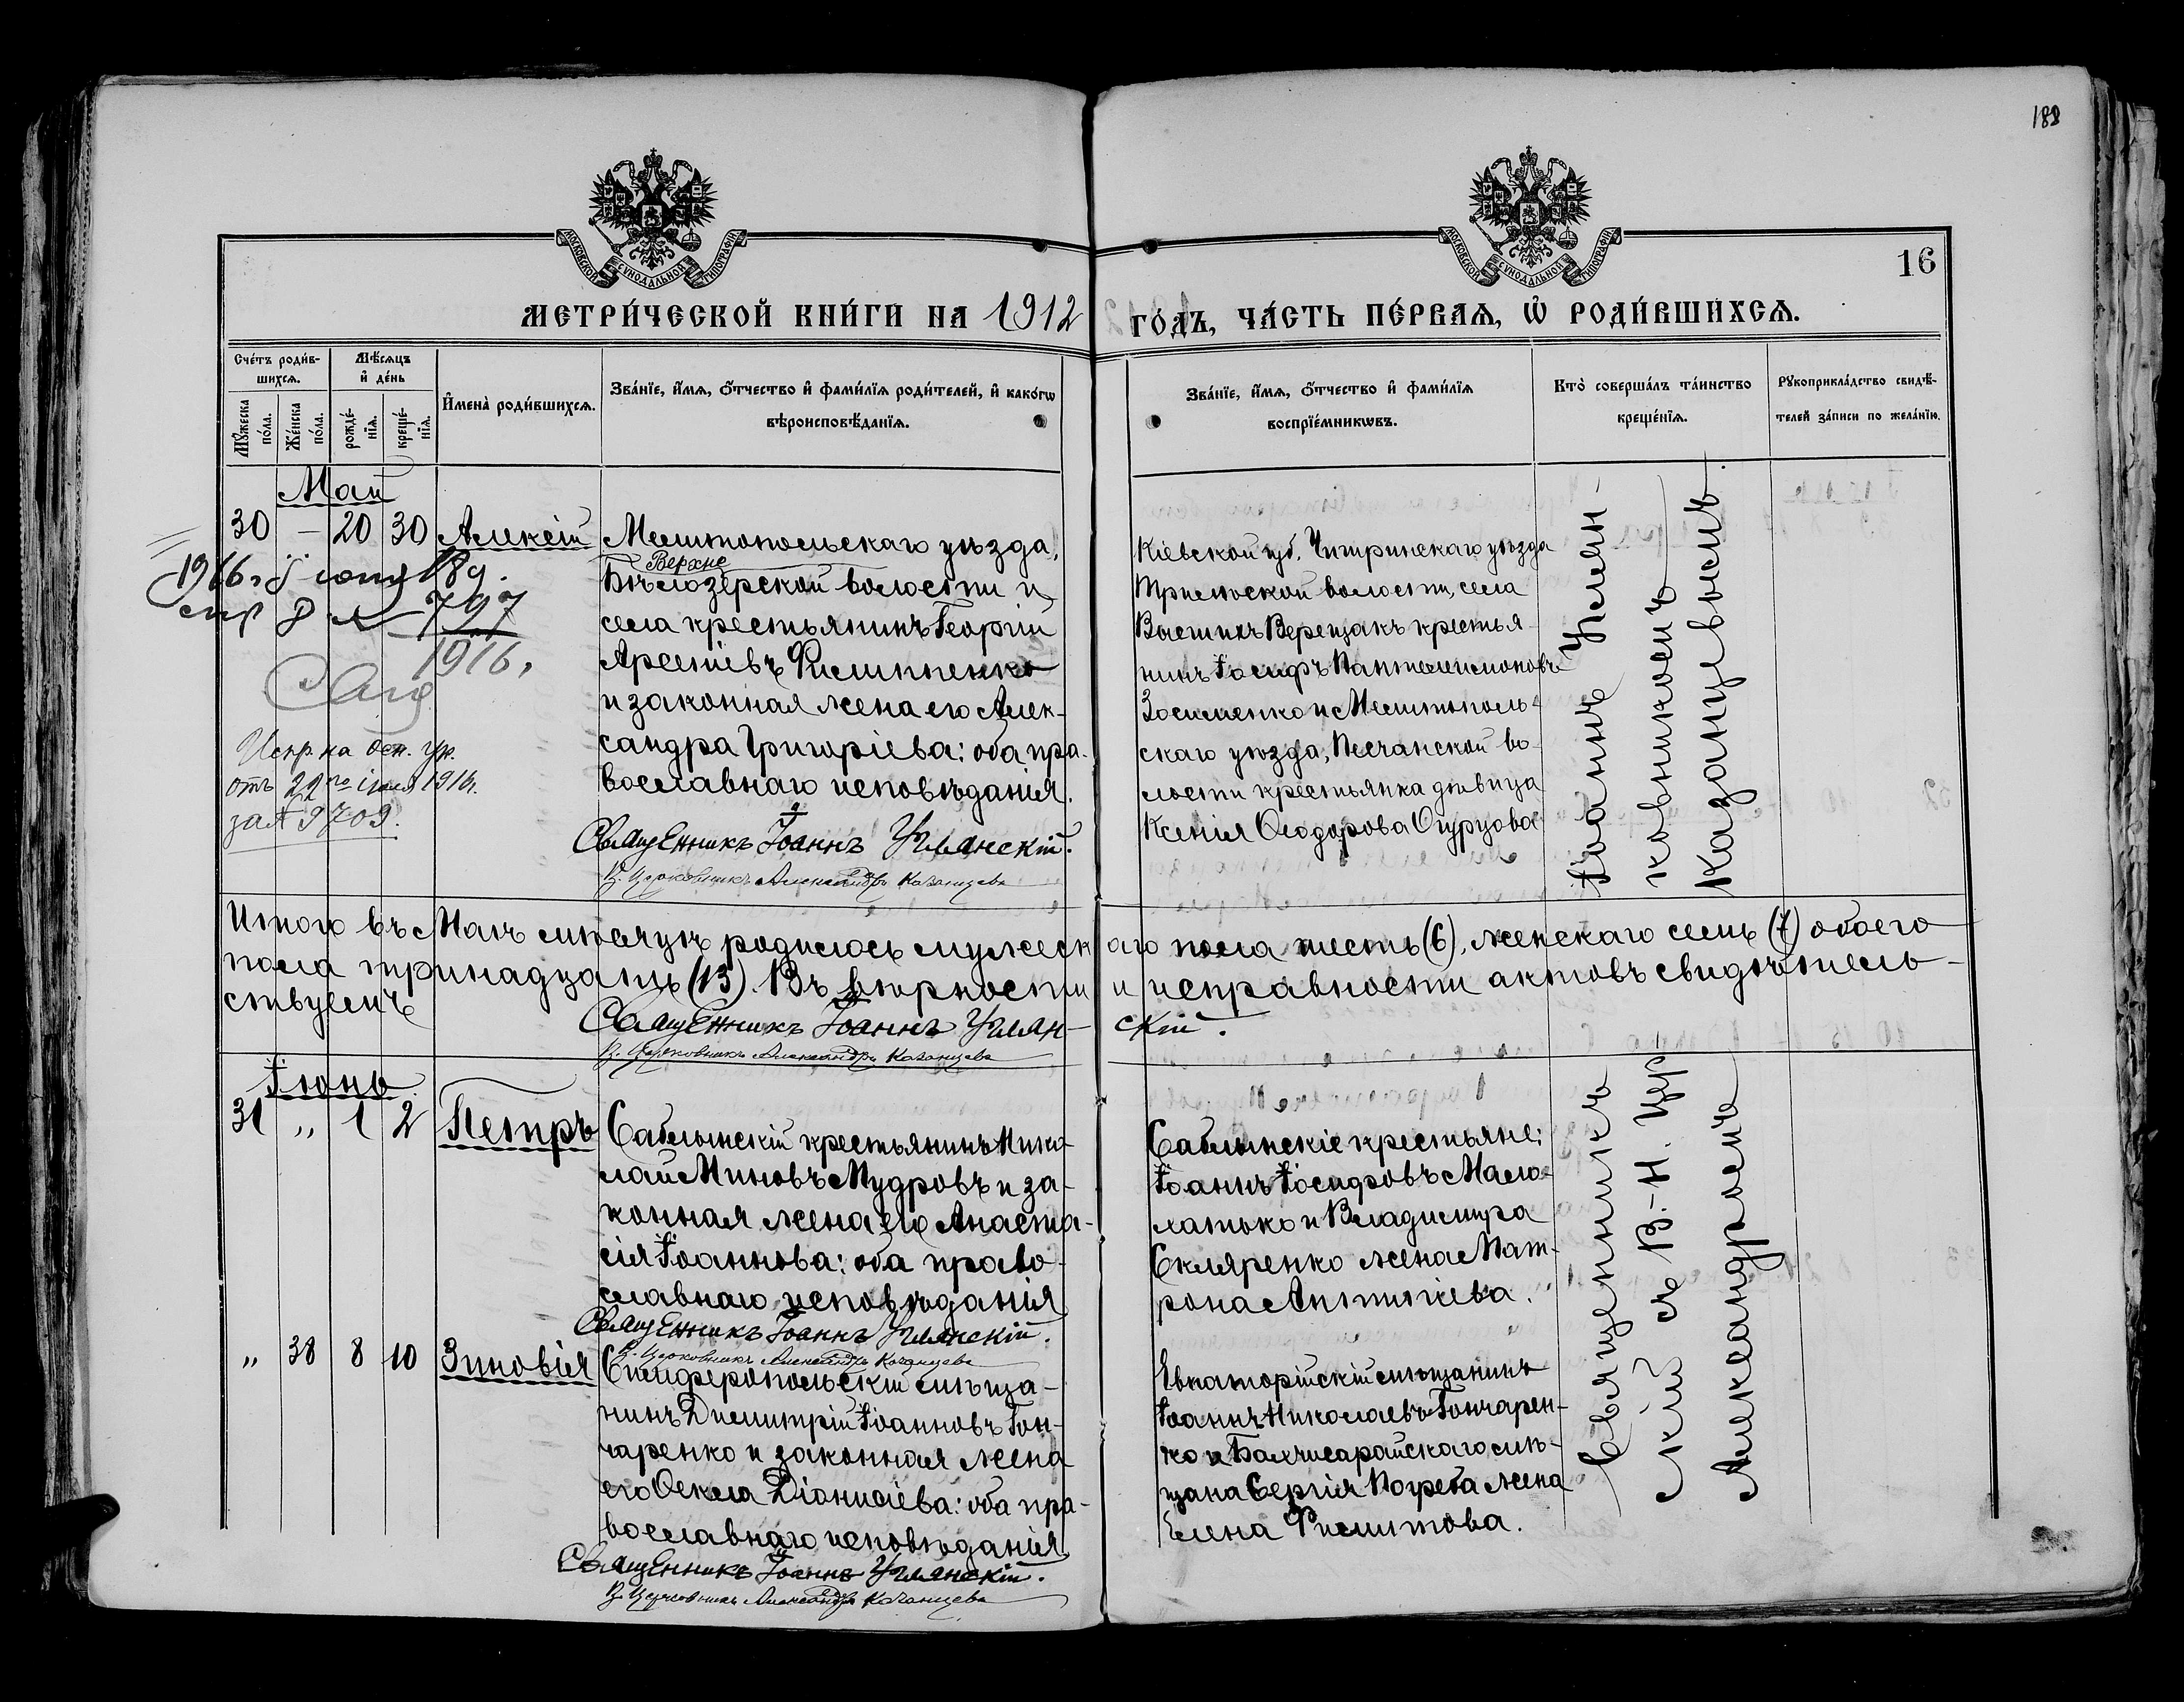 182
МОСКОВСКОЙ СУНОДАЛЬНОЙ ТИПОГРАФІИ
МОСКОВСКОЙ СУНОДАЛЬНОЙ ТИПОГРАФІИ
16
МЕТРИ́ЧЕСКОЙ КНИ́ГИ НА 1912 ГО́ДЪ, ЧА́СТЬ ПЕ́РВАЯ, Ѡ РОДИ́ВШИХСЯ.
Сче́тъ роди́в-
шихся.
Мѣ́сяцъ
и де́нь
Му́жеска
по́ла.
Же́нска
по́ла.
рожде́-
нія.
креще́-
нія.
Имена̀ роди́вшихся.
Зва́ніе, и́мя, о́тчество и фами́лія роди́телей, и како́гѡ
вѣроисповѣ́данія.
Зва́ніе, и́мя, о́тчество и фами́лія
воспріе́мникѡвъ.
Кто̀ соверша́лъ та́инство
креще́нія.
Рукоприкла́дство свидѣ́-
телей за́писи по жела́нію.
Май
30 — 20 30 Алексій
Мелитопольскаго уѣзда,
Верхне
Бѣлозерской волости и
села крестьянинъ Георгій
Арсеніевъ Филипенко
и законная жена его Алек-
сандра Григоріева: оба пра-
вославнаго исповѣданія.
Священникъ Іоаннъ Углянскій.
В. Церковникъ Александръ Казанцевъ
1916 г.
797
1916.
Испр. на осн. ук.
отъ 22го 1916 г.
за № 9709.
Кіевской губ. Чигринскаго уѣзда
Трилѣской волости, села
Верещакъ крестья-
нинъ Іосифъ Пантелеимоновъ
Зосименко и Мелитополь-
скаго уѣзда, Песчанской во-
лости крестьянка дѣвица
Ксенія Ѳеодорова Огурцова
Іоаннъ Углян-
ковникомъ
Казанцевымъ.
Итого въ Маѣ мѣсяцѣ родилось мужескаго пола шесть (6), женскаго семь (7) обоего
пола тринадцать (13). Въ вѣрности и исправности актовъ свидѣтель-
ствуемъ
Священникъ Іоаннъ Углянскій.
В. Церковникъ Александръ Казанцевъ
Іюнь
31 „ 1 2 Петръ
Саблынскій крестьянинъ Нико-
лай Миновъ Мудровъ и за-
конная жена его Анаста-
сія Іоаннова: оба право-
славнаго исповѣданія
Священникъ Іоаннъ Углянскій.
В. Церковникъ Александръ Казанцевъ
Саблынскіе крестьяне:
Іоаннъ Іосифовъ Мало-
латько и Владиміра
Скляренко жена Мат-
рона Антипіева.
„ 38 8 10 Зиновія
Симферопольскій мѣща-
нинъ Димитрій Іоанновъ Гон-
чаренко и законная жена
его Ѳекла Діонисіева: оба пра-
вославнаго исповѣданія
Священникъ Іоаннъ Углянскій.
В. Церковникъ Александръ Казанцевъ
Евпаторійскій мѣщанинъ
Іоаннъ Николаевъ Гончарен-
ко и Бахчисарайскаго мѣ-
щана Сергія Погреба жена
Елена Филиппова.
Священникъ
скій съ В.-Н. Цер
Александромъ